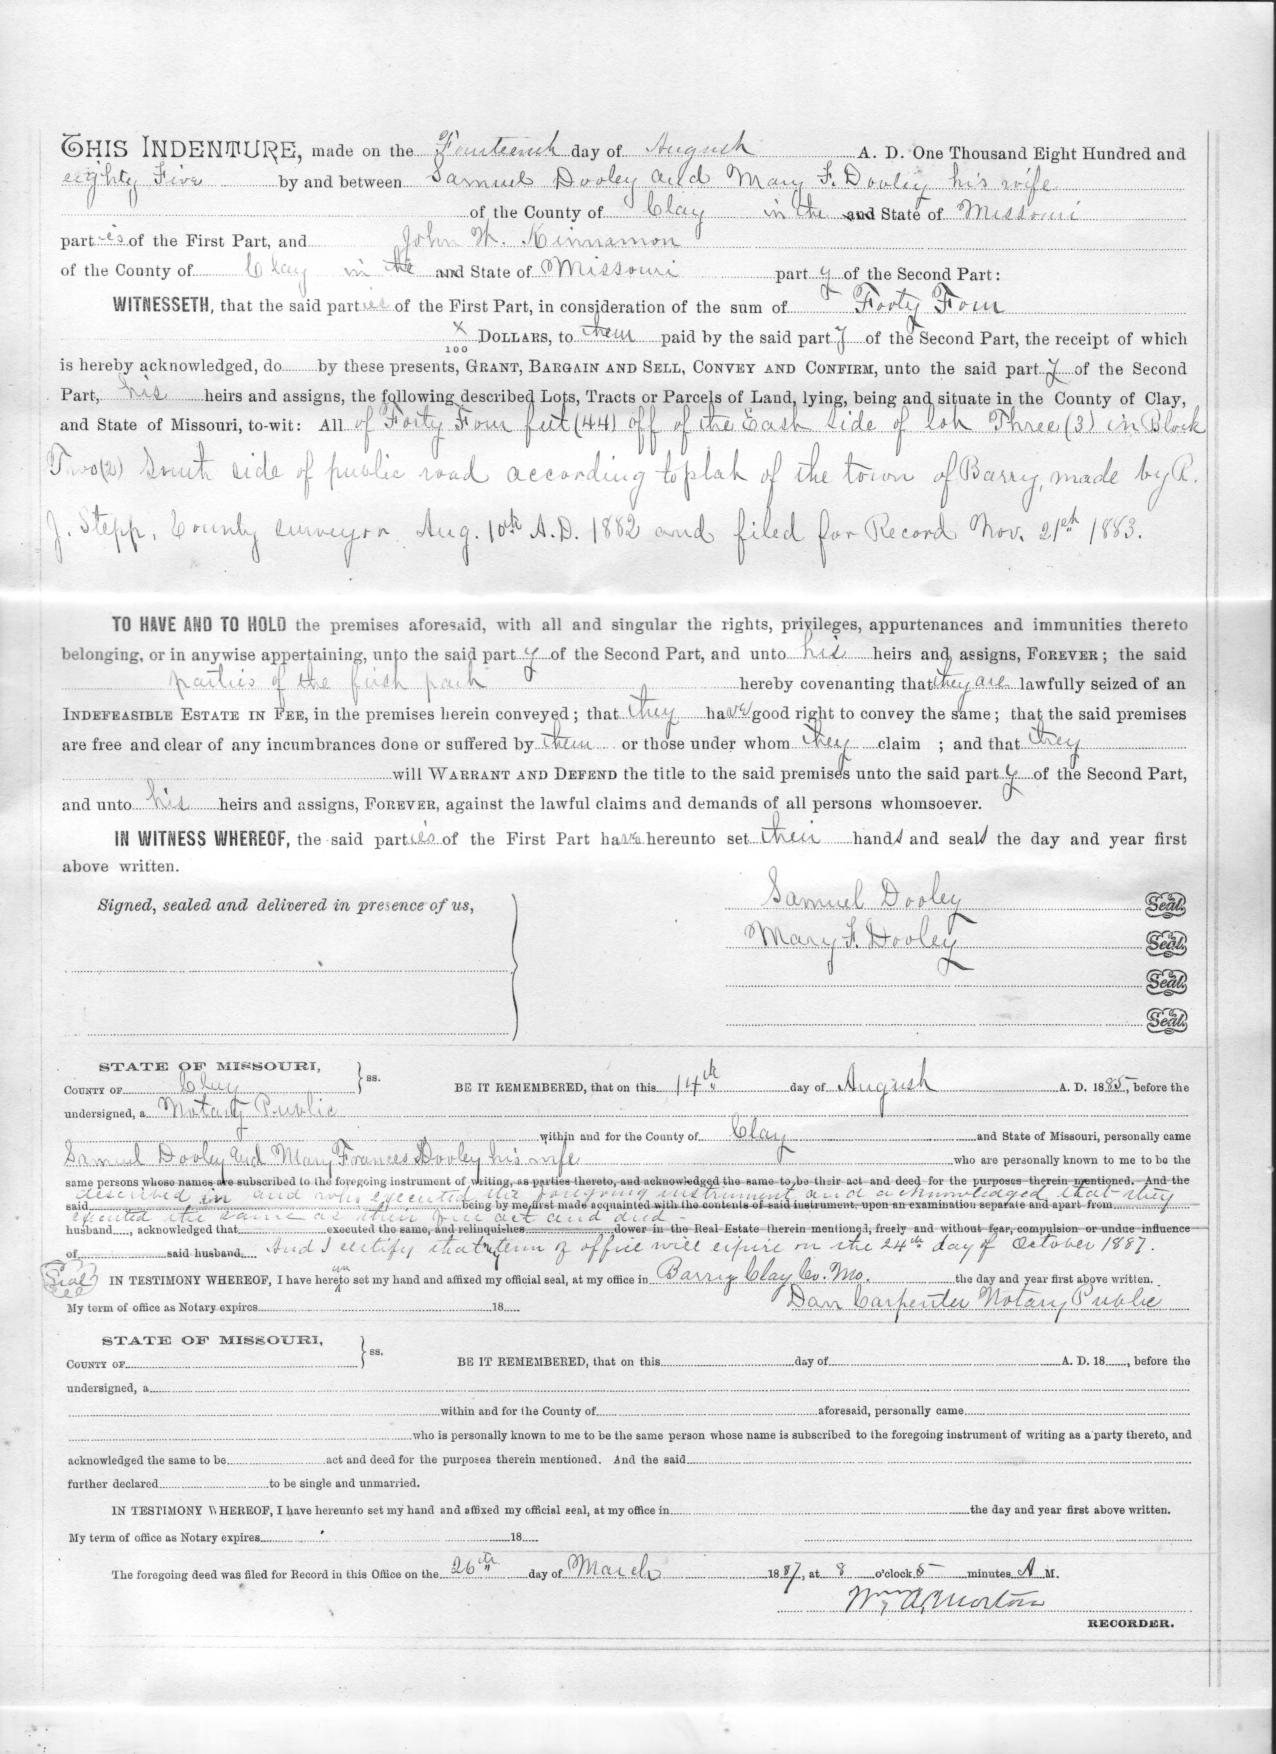 THIS INDENTURE, made on the Fourteenth day of August A. D. One Thousand Eight Hundred and
eighty Five by and between Samuel Dooley and Mary F. Dooley his wife
of the County of Clay in the and State of Missouri
parties of the First Part, and John W. Kinnamon
of the County of Clay in the and State of Missouri party of the Second Part:
WITNESSETH, that the said parties of the First Part, in consideration of the sum of Forty Four
x/100 DOLLARS, to them paid by the said party of the Second Part, the receipt of which
is hereby acknowledged, do by these presents, GRANT, BARGAIN AND SELL, CONVEY AND CONFIRM, unto the said party of the Second
Part, his heirs and assigns, the following described Lots, Tracts or Parcels of Land, lying, being and situate in the County of Clay,
and State of Missouri, to-wit: All of Forty Four feet (44) off of the East side of lot Three (3) in Block
Two (2) South side of public road according to plat of the town of Barry, made by R.
J. Stepp, County surveyor Aug. 10th A.D. 1882 and filed for Record Nov. 21st 1883.
TO HAVE AND TO HOLD the premises aforesaid, with all and singular the rights, privileges, appurtenances and immunities thereto
belonging, or in anywise appertaining, unto the said party of the Second Part, and unto his heirs and assigns, FOREVER; the said
parties of the first part hereby covenanting that they are lawfully seized of an
INDEFEASIBLE ESTATE IN FEE, in the premises herein conveyed; that they have good right to convey the same; that the said premises
are free and clear of any incumbrances done or suffered by them or those under whom they claim ; and that they
will WARRANT AND DEFEND the title to the said premises unto the said party of the Second Part,
and unto his heirs and assigns, FOREVER, against the lawful claims and demands of all persons whomsoever.
IN WITNESS WHEREOF, the said parties of the First Part have hereunto set their hands and seals the day and year first
above written.
Signed, sealed and delivered in presence of us,
Samuel Dooley Seal.
Mary F. Dooley Seal.
Seal.
Seal.
STATE OF MISSOURI,
COUNTY OF Clay ss. BE IT REMEMBERED, that on this 14th day of August A. D. 1885, before the
undersigned, a Notary Public
within and for the County of Clay and State of Missouri, personally came
Samuel Dooley and Mary Frances Dooley his wife who are personally known to me to be the
same persons whose names are subscribed to the foregoing instrument of writing, as parties thereto, and acknowledged the same to be their act and deed for the purposes therein mentioned. And the
described in and who executed the foregoing instrument and acknowledged that they
said being by me first made acquainted with the contents of said instrument, upon an examination separate and apart from
executed the same as their free act and deed
husband , acknowledged that executed the same, and relinquishes dower in the Real Estate therein mentioned, freely and without fear, compulsion or undue influence
of said husband. And I certify that my term of office will expire on the 24th day of October 1887.
Seal
IN TESTIMONY WHEREOF, I have hereunto set my hand and affixed my official seal, at my office in Barry Clay Co. Mo. the day and year first above written.
My term of office as Notary expires 18 Dan Carpenter Notary Public
STATE OF MISSOURI,
COUNTY OF ss. BE IT REMEMBERED, that on this day of A. D. 18 , before the
undersigned, a
within and for the County of aforesaid, personally came
who is personally known to me to be the same person whose name is subscribed to the foregoing instrument of writing as a party thereto, and
acknowledged the same to be act and deed for the purposes therein mentioned. And the said
further declared to be single and unmarried.
IN TESTIMONY WHEREOF, I have hereunto set my hand and affixed my official seal, at my office in the day and year first above written.
My term of office as Notary expires 18
The foregoing deed was filed for Record in this Office on the 26th day of March 1887, at 8 o'clock 5 minutes A M.
Wm A. Morton
RECORDER.